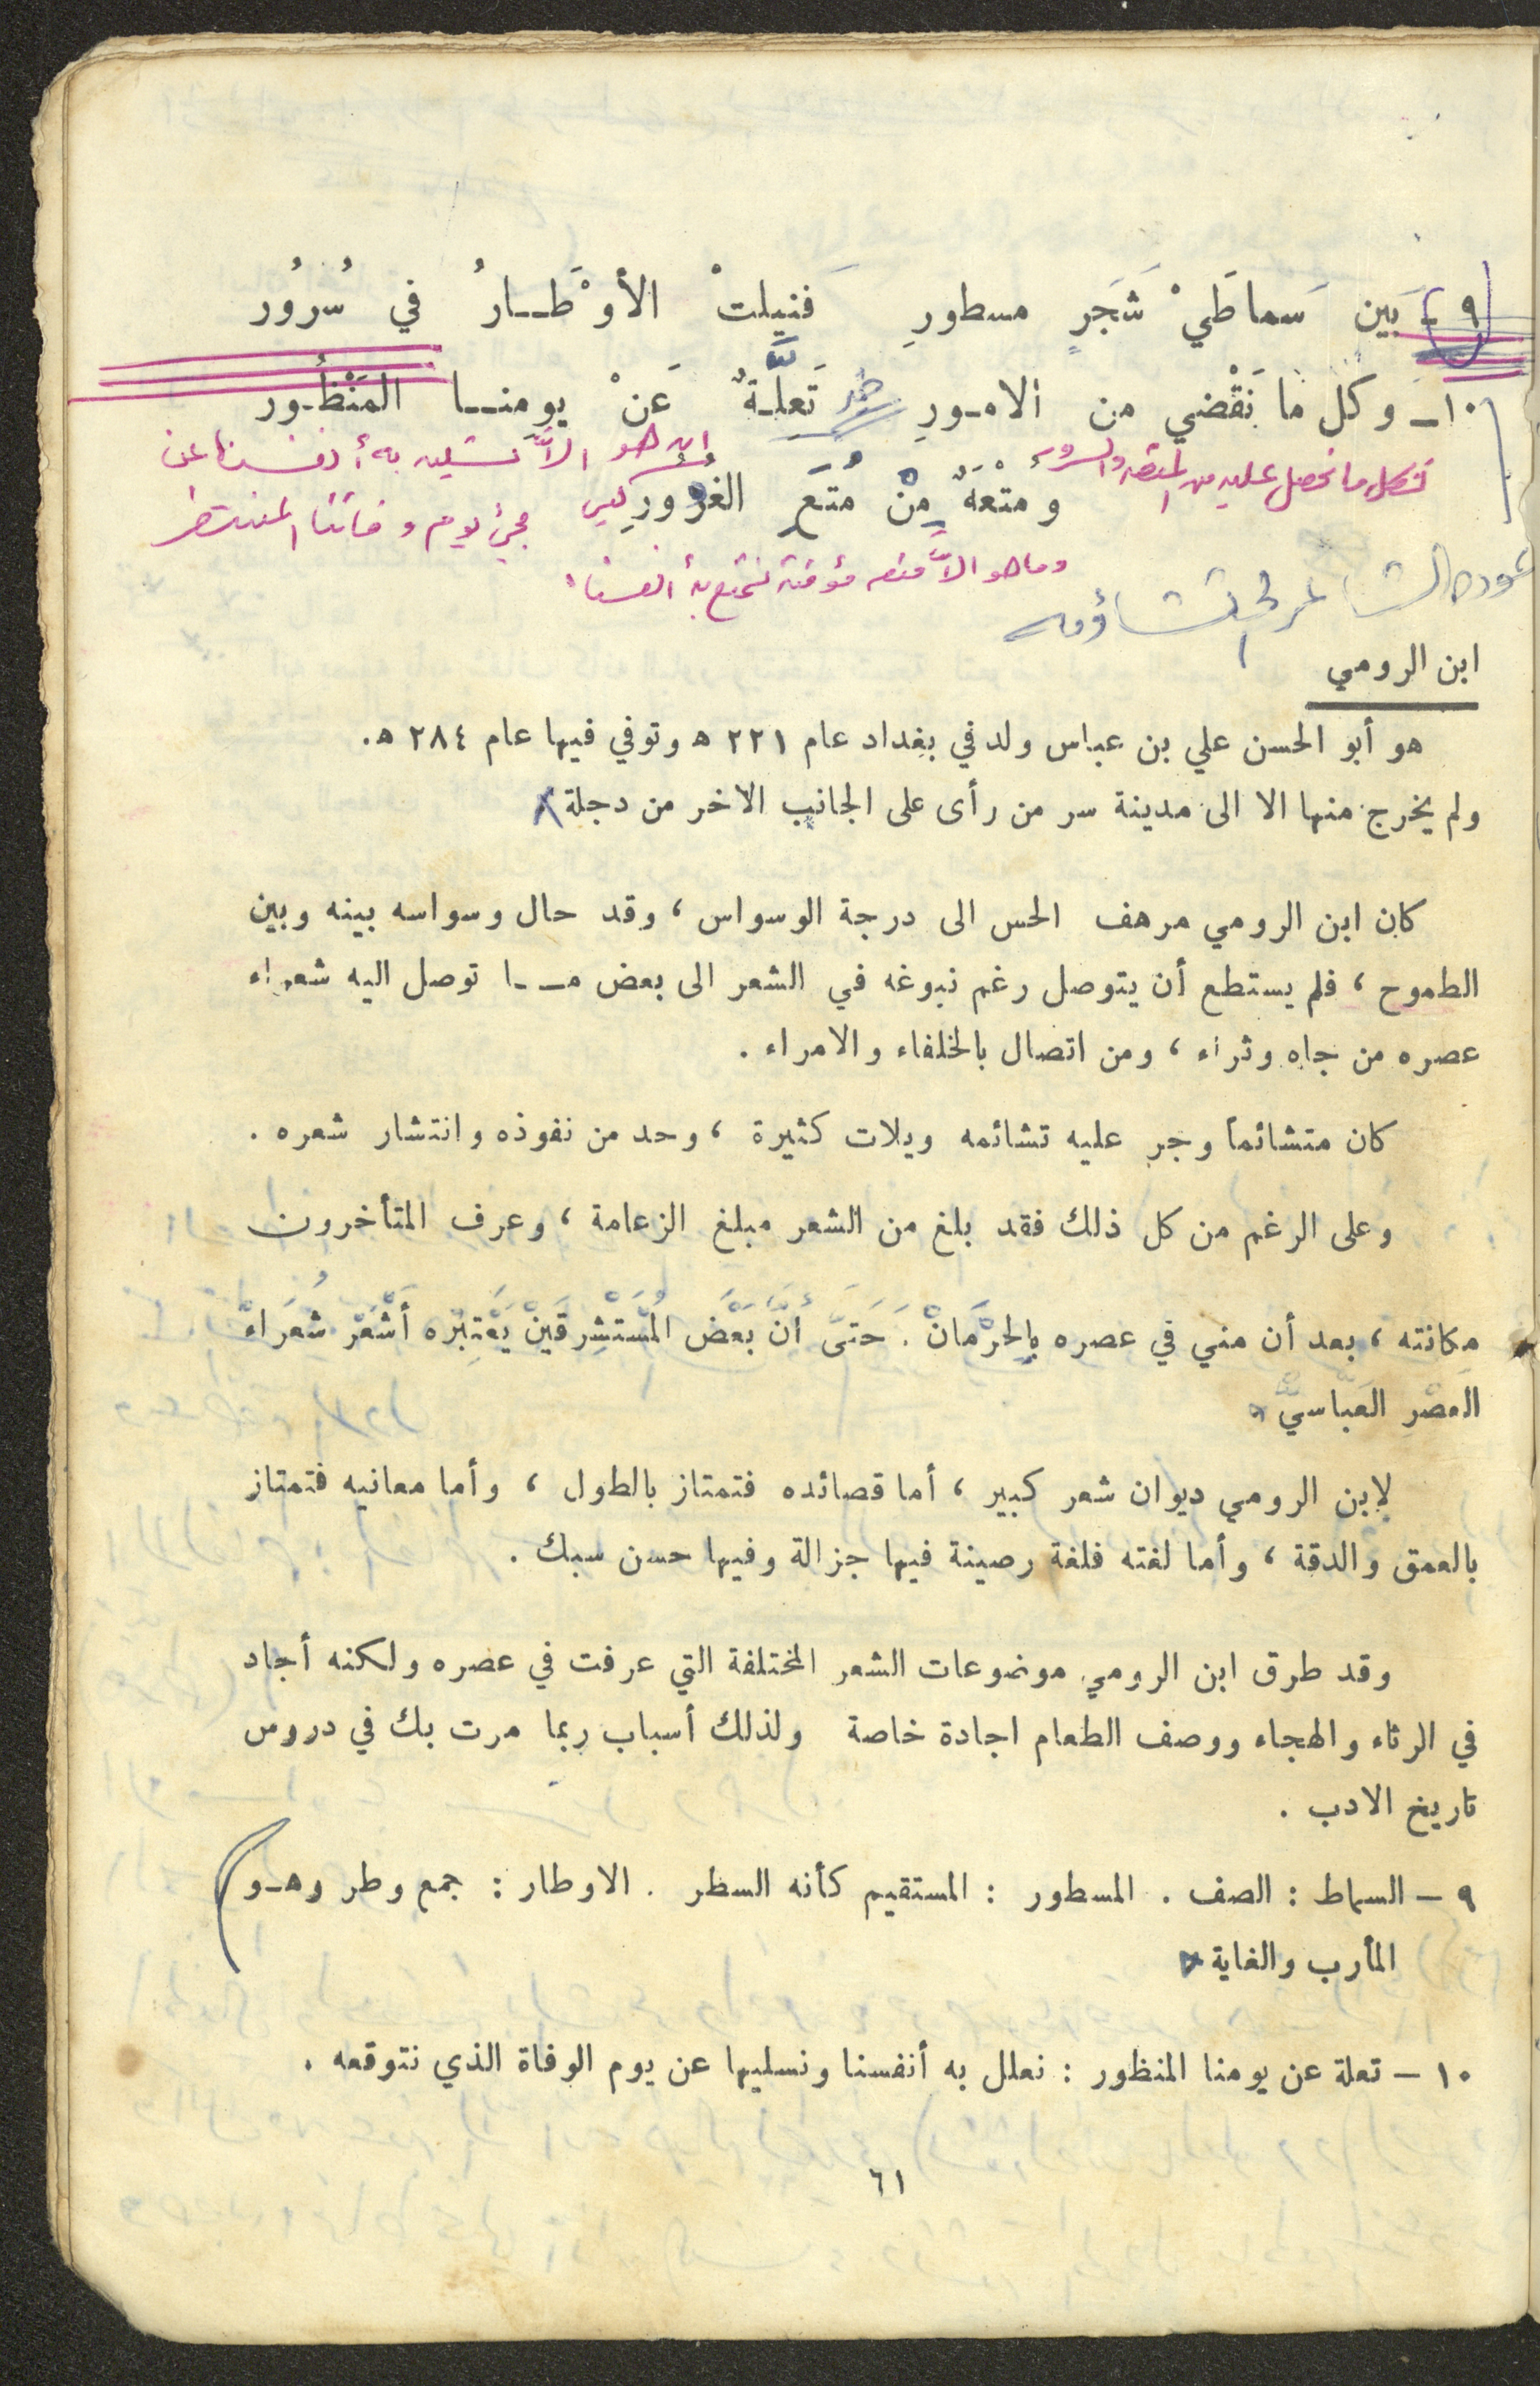 ٩ ـ بَين سَماطَيْ شَجَرٍ مسطورِ فَنيلتْ الأوْطَـارُ في سُرُور
١٠ـ وكل ما نَقْضي من الامـورِ خبر تَعلَّـةٌ عَنْ يومنـا المَنْظُـور
فكل ما نحصل عليه من المتعه والسرور ان هو الاَّ تسليه به أنفسنا عن
ومتْعَةٌ مِنْ مُتَعِ الغُرُورِ ليس
مجيء يوم وفاتنا المنتظر
وما هو الاَّ متعه مؤقته نتمتع به أنفسنا
عوده الشاعر الى تشاؤمه
ابن الرومي
هو أبو الحسن علي بن عباس ولد في بغداد عام ٢٢١ ه وتوفي فيها عام ٢٨٤ ه.
ولم يخرج منها الا الى مدينة سر من رأى على الجانب الاخر من دجلة
كان ابن الرومي مرهف الحس الى درجة الوسواس ، وقد حال وسواسه بينه وبين
الطموح ، فلم يستطع أن يتوصل رغم نبوغه في الشعر الى بعض مـا توصل اليه شعراء
عصره من جاه وثراء ، ومن اتصال بالخلفاء والامراء .
كان متشائماً وجر عليه تشائمه ويلات كثيرة ، وحد من نفوذه وانتشار شعره .
وعلى الرغم من كل ذلك فقد بلغ من الشعر مبلغ الزعامة ، وعرف المتأخرون
مكانته ، بعد أن مني في عصره بِالحِرْمَانْ . حَتىَّ أنَّ بَعْضَ المُسْتَشْرِقَيْنْ يَعْتَبِرْه أشْعَرْ شُعَرَاءْ
العَصْرِ العَبَّاسيّْ
لإبن الرومي ديوان شعر كبير ، أما قصائده فتمتاز بالطول ، وأما معانيه فتمتاز
بالعمق والدقة ، وأما لغته فلغة رصينة فيها جزالة وفيها حسن سبك .
وقد طرق ابن الرومي موضوعات الشعر المختلفة التي عرفت في عصره ولكنه أجاد
في الرثاء والهجاء ووصف الطعام اجادة خاصة ولذلك أسباب ربما مرت بك في دروس
تاريخ الادب .
٩ ـ السماط : الصف . المسطور : المستقيم كأنه السطر . الاوطار : جمع وطر وهـو
المأرب والغاية
١٠ ـ تعلة عن يومنا المنظور : نعلل به أنفسنا ونسليها عن يوم الوفاة الذي نتوقعه .
٦١